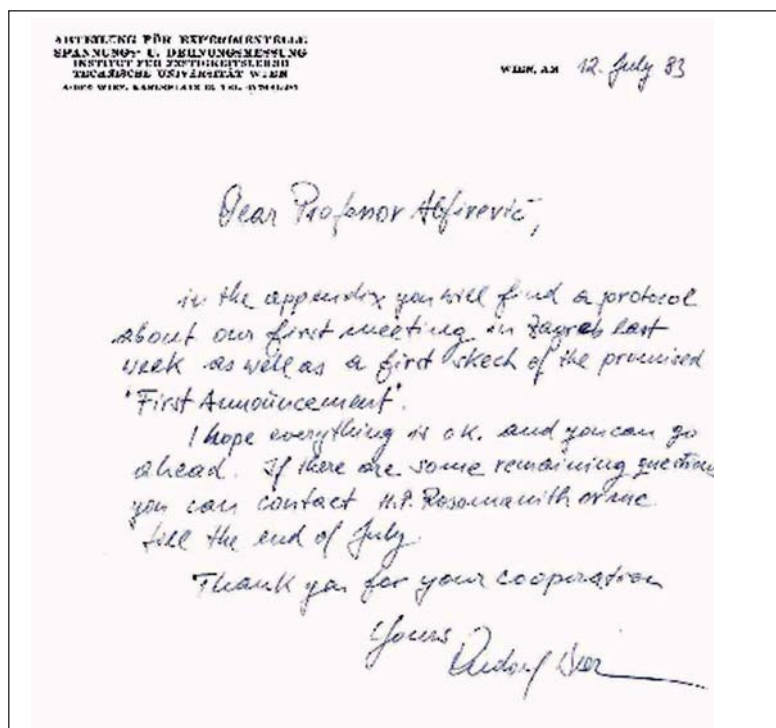 ABTEILUNG FÜR EXPERIMENTELLE
SPANNUNGS- U. DEHNUNGSMESSUNG
INSTITUT FÜR FESTIGKEITSLEHRE
TECHNISCHE UNIVERSITÄT WIEN
WIEN, KARLSPLATZ 13, TEL.
WIEN, AM 12. July 83
Dear Professor Alfirević,
in the appendix you will find a protocol
about our first meeting in Zagreb last
week as well as a first skech of the promised
"First Announcement".
I hope everything is ok. and you can go
ahead. If there are some remaining questions
you can contact H.P. Rossmanith or me
till the end of July.
Thank you for your cooperation
Yours
Rudolf